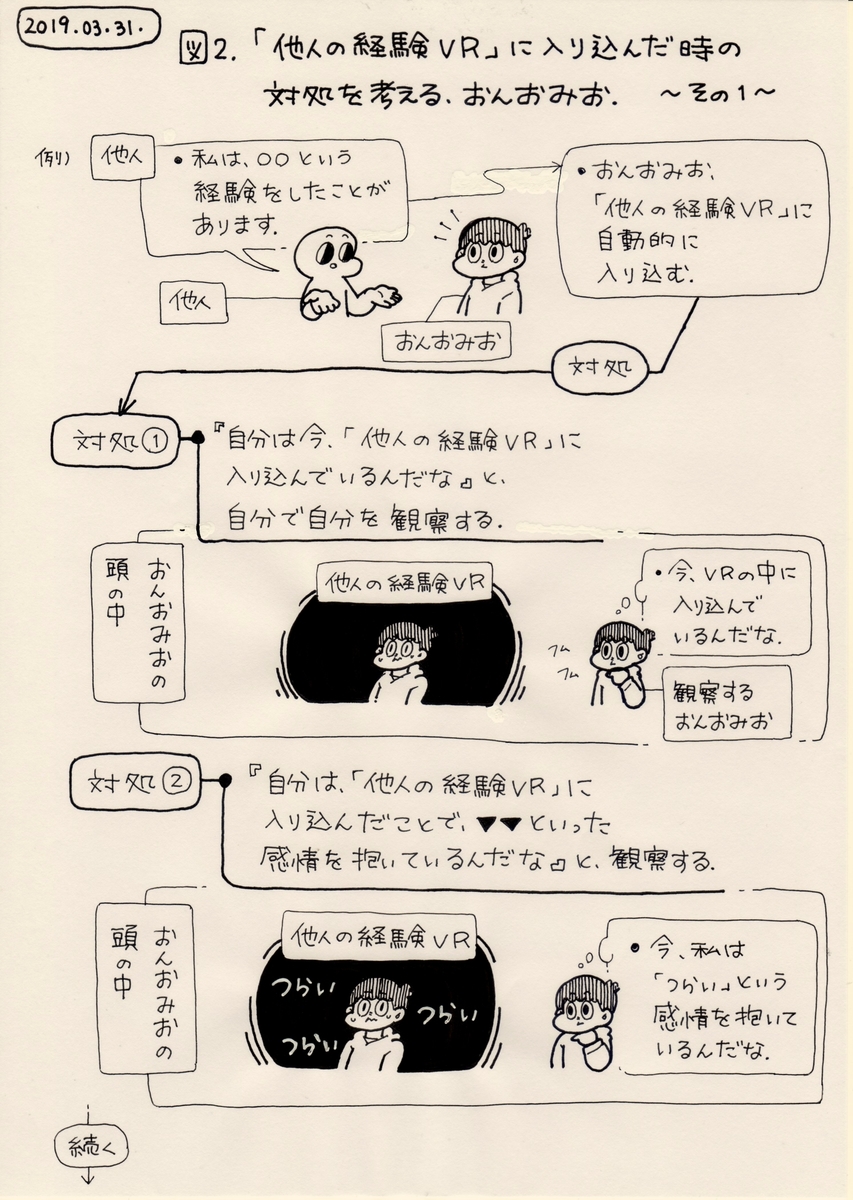 2019.03.31.
図2.「他人の経験VR」に入り込んだ時の
対処を考える、おんおみお. 〜その1〜
例)
他人
•私は、○○という
経験をしたことが
あります.
他人
おんおみお
•おんおみお、
「他人の経験VR」に
自動的に
入り込む.
対処
対処①
『自分は今、「他人の経験VR」に
入り込んでいるんだな』と、
自分で自分を観察する.
おんおみおの
頭の中
他人の経験VR
フム
フム
•今、VRの中に
入り込んで
いるんだな.
観察する
おんおみお
対処②
『自分は、「他人の経験VR」に
入り込んだことで、▼▼といった
感情を抱いているんだな』と、観察する.
おんおみおの
頭の中
他人の経験VR
つらい
つらい
つらい
•今、私は
「つらい」という
感情を抱いて
いるんだな.
続く